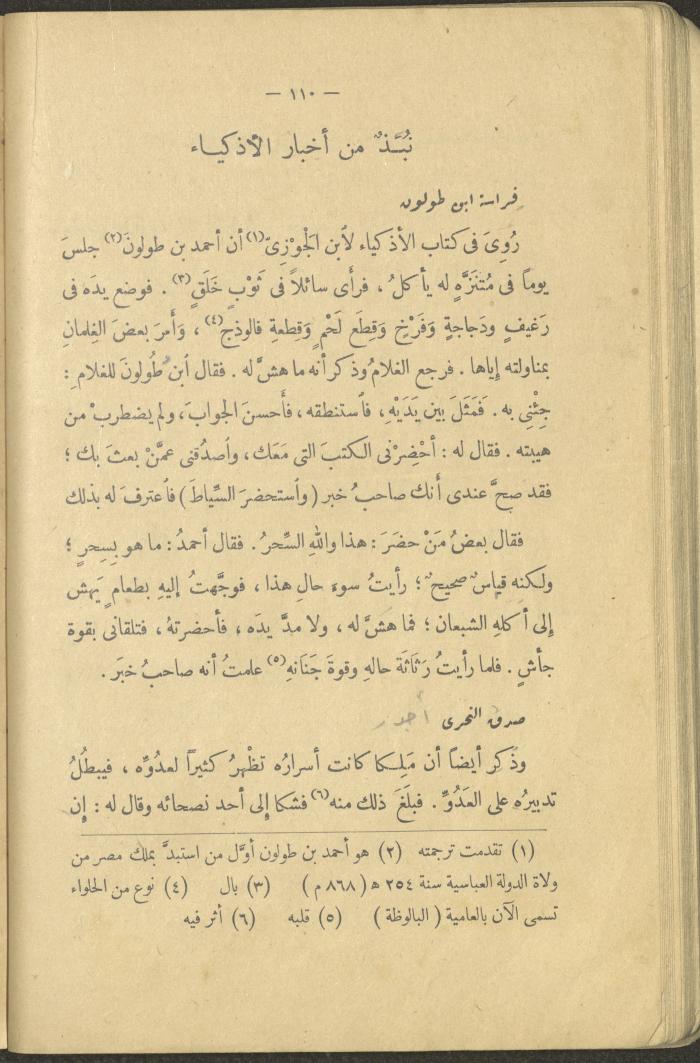 — ١١٠ —
نُبَذٌ من أخبار الأذكياء
فراسة ابن طولون
رُوِىَ فى كتاب الأذكياء لأبن الجَوْزِىّ(١) أن أحمد بن طولونَ(٢) جلسَ
يوماً فى مُتَنَزَّهٍ له يأكلُ ، فرأَى سائلاً فى ثَوْبٍ خَلَقٍ(٣) . فوضع يدَه فى
رَغيفٍ ودَجاجةٍ وَفَرْخٍ وَقِطَعِ لَحْمٍ وَقِطعةِ فالوذَجٍ(٤) ، وَأَمرَ بعضَ الغِلمانِ
بمناولته إياها . فرجع الغلامُ وذكر أنه ما هشَّ له . فقال أبن طُولونَ للغلام :
جِئْنِى به . فَمَثَلَ بين يَدَيْهِ ، فأستنطقه ، فأَحسنَ الجوابَ ، ولم يضطربْ من
هيبته . فقال له : أحْضِرْنى الكتبَ التى مَعَك ، واُصدُقنى عمَّنْ بعثَ بك ؛
فقد صحَّ عندى أَنك صاحبُ خبر (واُستحضرَ السِّياطَ) فأعترفَ له بذلك
فقال بعضُ مَنْ حضَرَ : هذا واللهِ السِّحرُ . فقال أحمدُ : ما هو بِسِحرٍ ؛
ولكنه قياسٌ صحيحٌ ؛ رأيتُ سوءَ حالِ هذا ، فوجَّهتُ إليهِ بطعامٍ يَهش
إلى أكلهِ الشبعان ؛ فما هشَّ له ، ولا مدَّ يدَه ، فأحضرتهُ ، فتلقانى بقوة
جأشٍ . فلما رأيتُ رَثَاثَة حالهِ وقوةَ جَنَانهِ(٥) علمتُ أنه صاحبُ خبَر .
صدق التحرى
وذَكر أيضاً أن مَلِكا كانت أسرارُه تظْهرُ كثيراً لعدُوِّه ، فيبطُلُ
تدبيرُه على العَدُوِّ . فبلَغَ ذلك منه(٦) فشكا إلى أحد نصحائه وقال له : إن
(١) تقدمت ترجمته (٢) هو أحمد بن طولون أوَّل من استبدَّ بملك مصر من
ولاة الدولة العباسية سنة ٢٥٤ ه (٨٦٨ م) (٣) بال (٤) نوع من الحلواء
تسمى الآن بالعامية (البالوظة) (٥) قلبه (٦) أثر فيه